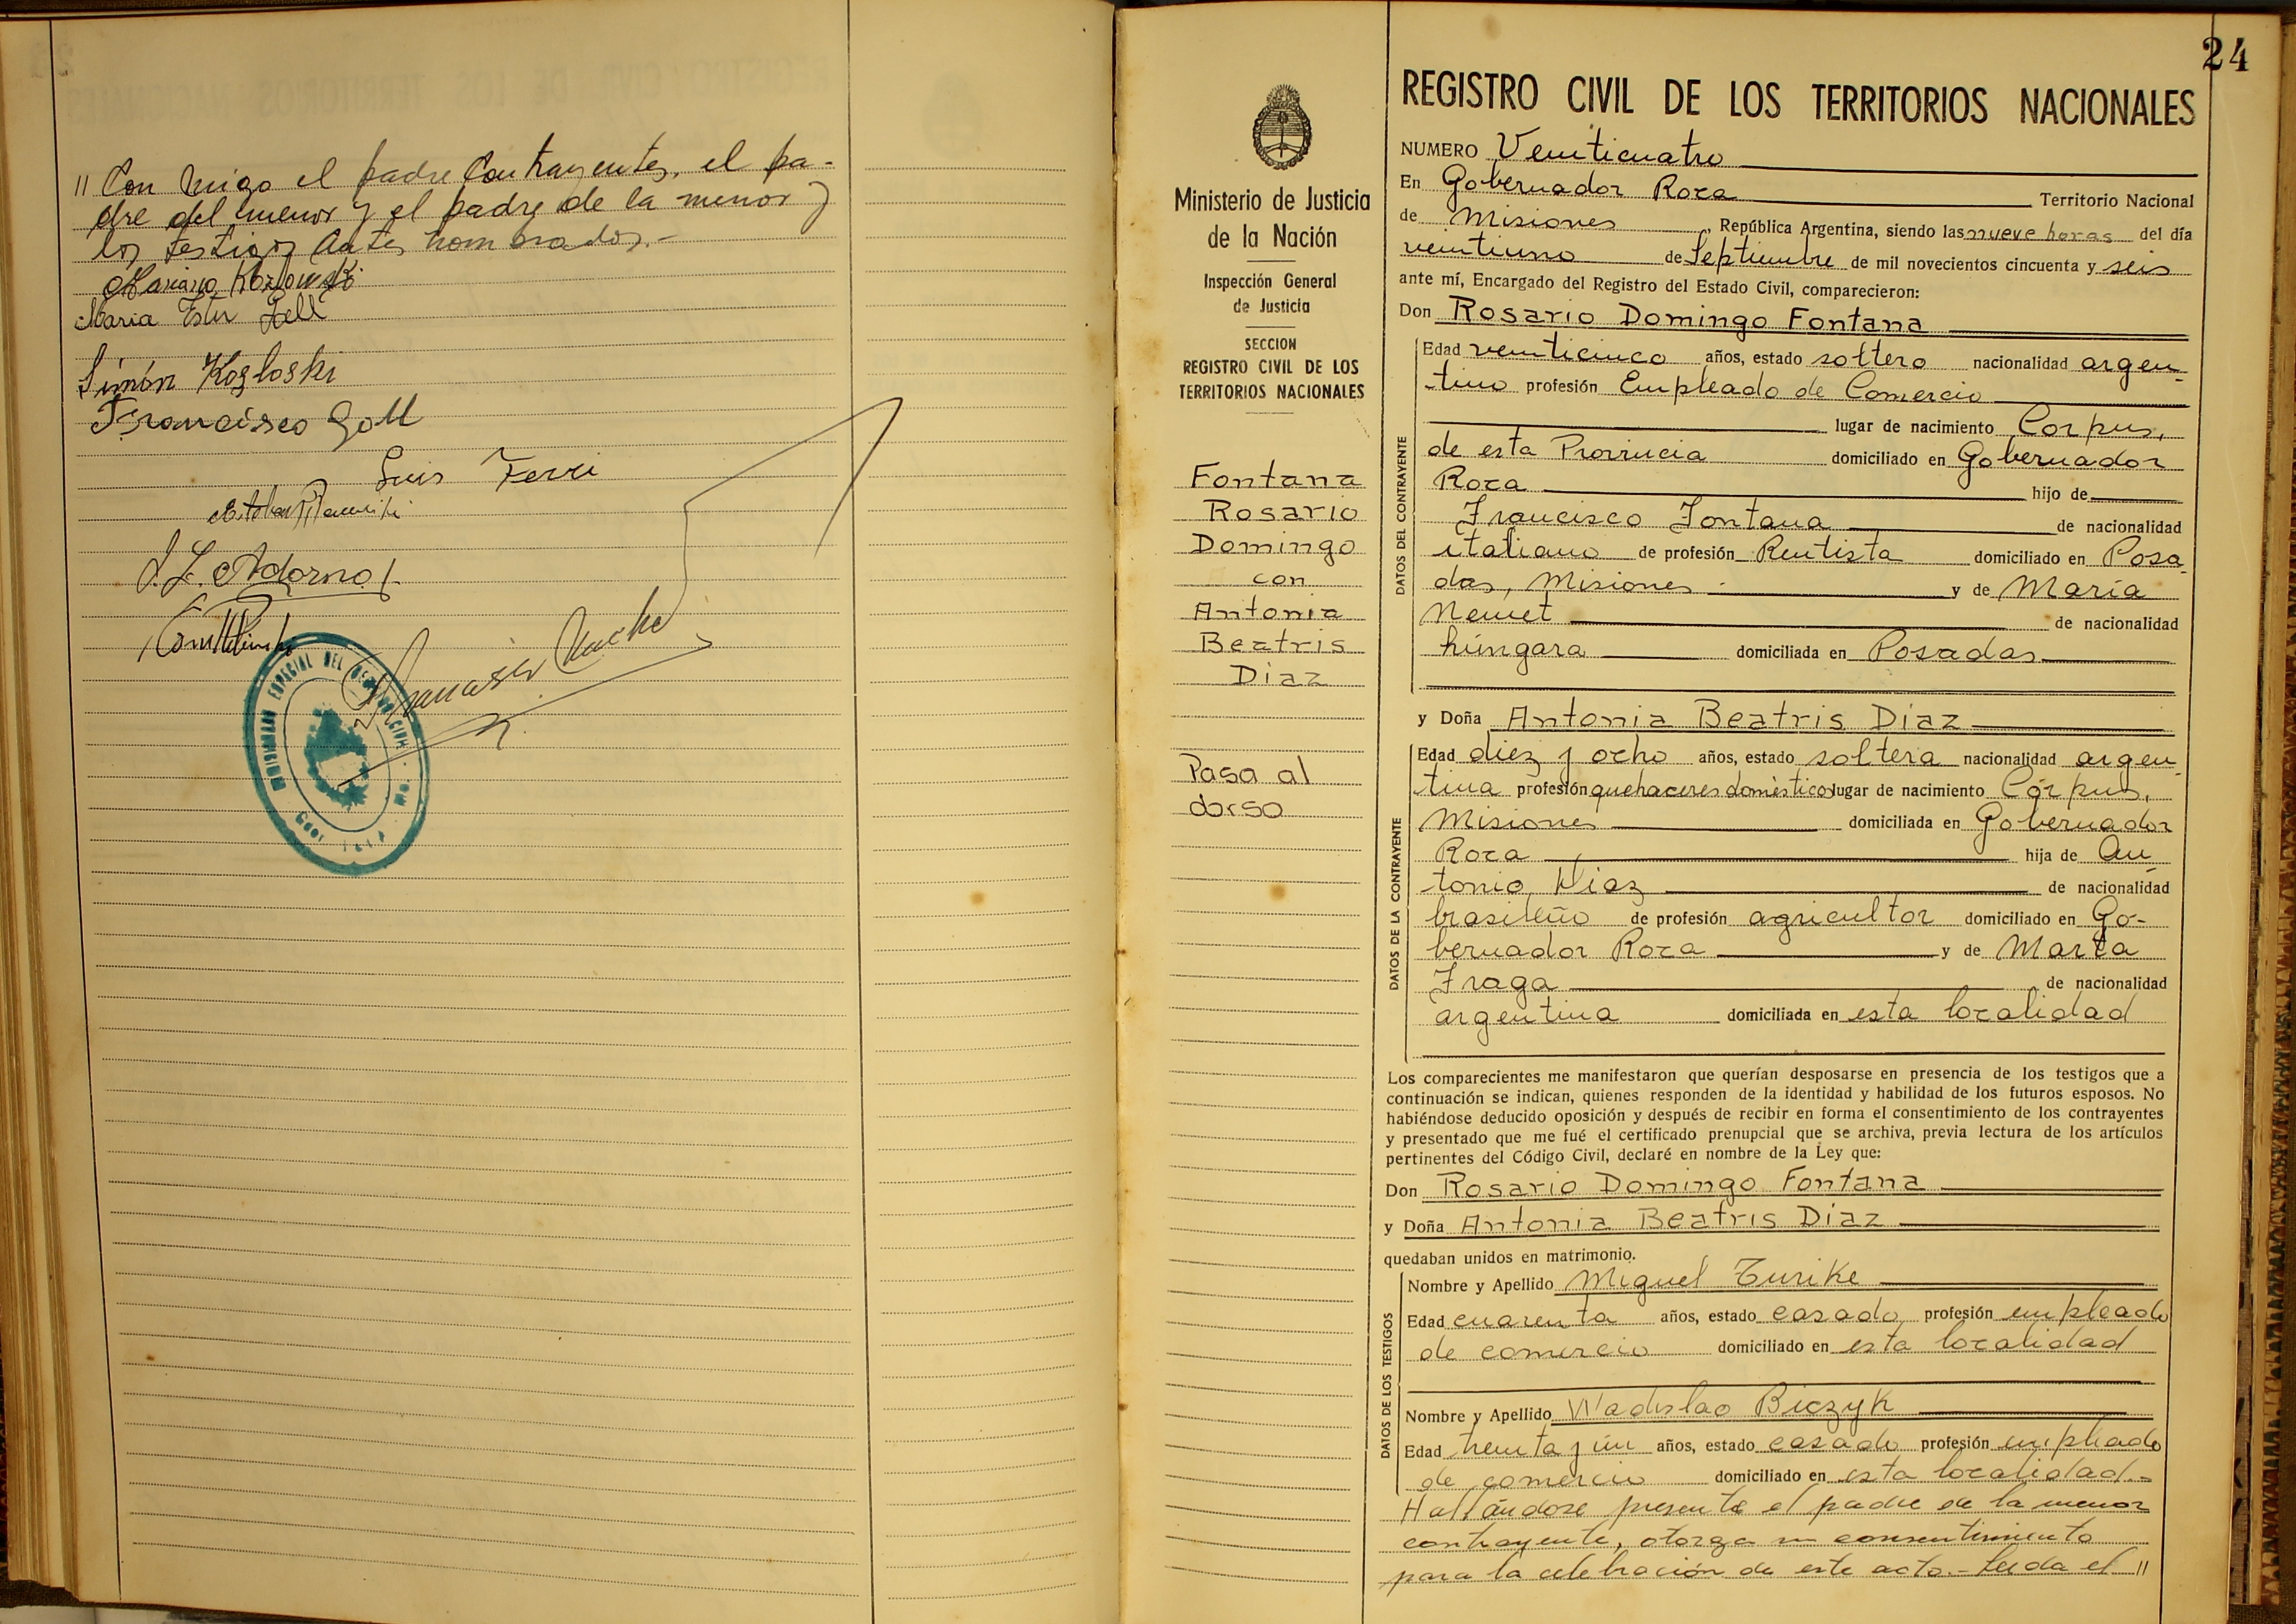 " Con migo el padre Contrayentes, el pa-
dre del menor y el padre de la menor y
los testigos antes nombrados.-
Mariano Kozlowski
Maria Ester Goll
Simón Kogloski
Francisco Goll
Luis Ferri
Esteban
J. L. Adorno
24
REGISTRO CIVIL DE LOS TERRITORIOS NACIONALES
Ministerio de Justicia
de la Nación
Inspección General
de Justicia
SECCION
REGISTRO CIVIL DE LOS
TERRITORIOS NACIONALES
Fontana
Rosario
Domingo
con
Antonia
Beatris
Diaz
Pasa al
dorso
NUMERO Venticuatro
En Gobernador Roca Territorio Nacional
de Misiones, República Argentina, siendo las nueve horas del día
veintiuno de Septiembre de mil novecientos cincuenta y seis
ante mí, Encargado del Registro del Estado Civil, comparecieron:
Don Rosario Domingo Fontana
DATOS DEL CONTRAYENTE
Edad venticinco años, estado soltero nacionalidad argen-
tino profesión Empleado de Comercio
lugar de nacimiento Corpus,
de esta Provincia domiciliado en Gobernador
Roca hijo de
Francisco Fontana de nacionalidad
italiano de profesión Rentista domiciliado en Posa-
das, Misiones y de María
Nemet de nacionalidad
húngara domiciliada en Posadas
y Doña Antonia Beatris Díaz
DATOS DE LA CONTRAYENTE
Edad diez y ocho años, estado soltera nacionalidad argen-
tina profesión quehaceres domésticos lugar de nacimiento Corpus,
Misiones domiciliada en Gobernador
Roca hija de An
tonio Diaz de nacionalidad
brasileño de profesión agricultor domiciliado en Go-
bernador Roca y de Marta
Fraga de nacionalidad
argentina domiciliada en esta localidad
Los comparecientes me manifestaron que querían desposarse en presencia de los testigos que a
continuación se indican, quienes responden de la identidad y habilidad de los futuros esposos. No
habiéndose deducido oposición y después de recibir en forma el consentimiento de los contrayentes
y presentado que me fué el certificado prenupcial que se archiva, previa lectura de los artículos
pertinentes del Código Civil, declaré en nombre de la Ley que:
Don Rosario Domingo Fontana
y Doña Antonia Beatris Díaz
quedaban unidos en matrimonio.
DATOS DE LOS TESTIGOS
Nombre y Apellido Miguel Turike
Edad cuarenta años, estado casado profesión empleado
de comercio domiciliado en esta localidad
Nombre y Apellido Wadislao Biczyk
Edad treinta y ún años, estado casado profesión empleado
de comercio domiciliado en esta localidad.-
Hallándose presente el padre de la menor
contrayente, otorga su consentimiento
para la celebración de este acto.- Leida el "